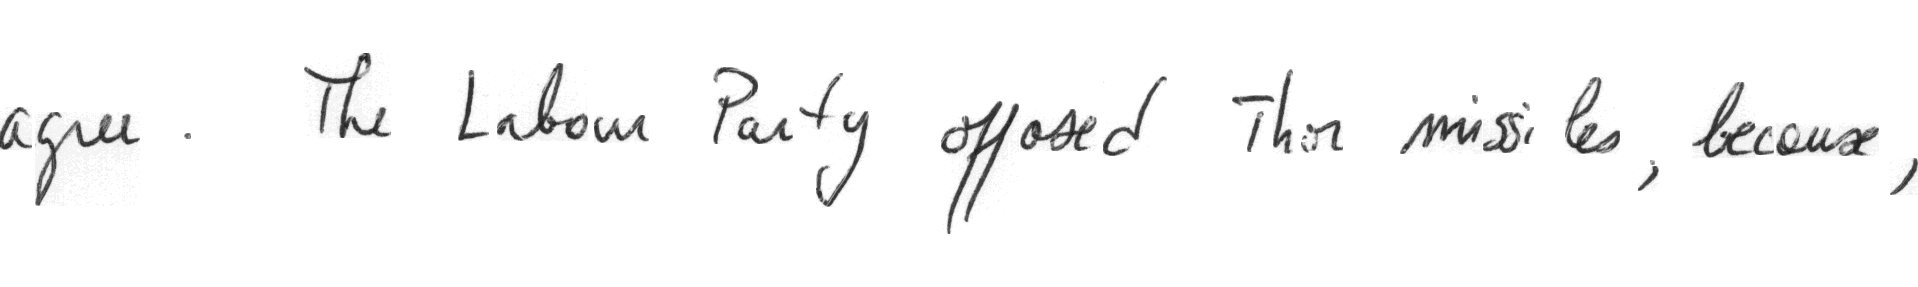 agree. The Labour Party opposed Thor missiles, because,